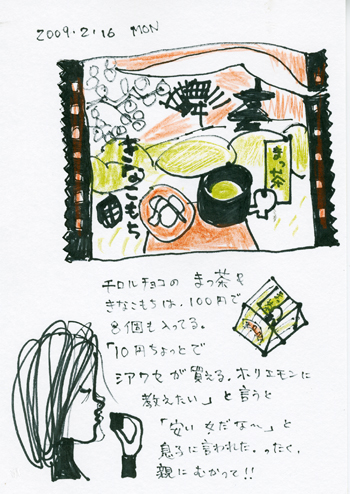 2009.2.16 MON
きなこもち
まっ茶
チロルチョコの まっ茶&
きなこもちは、100円で
8個も入ってる。
「10円ちょっとで
シアワセが買える。ホリエモンに
教えたい」と言うと
「安い女だな〜」と
息子に言われた。ったく、
親にむかって!!